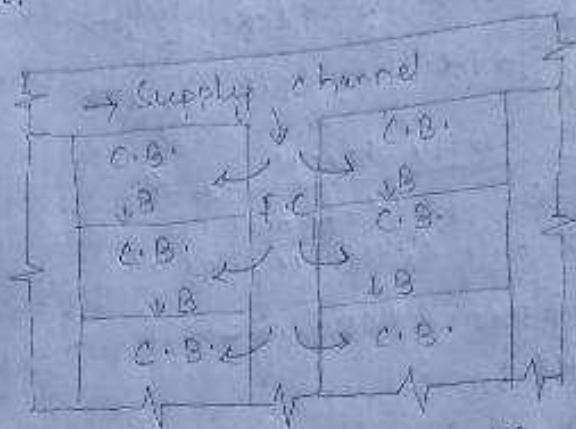 → Supply channel
C.B. C.B.
↓B ↓B
F.C
C.B. C.B.
↓B ↓B
C.B. C.B.